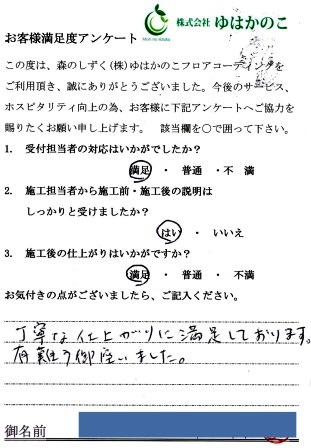 Mori no shizuku
株式会社 ゆはかのこ
お客様満足度アンケート
この度は、森のしずく(株)ゆはかのこフロアコーティングを
ご利用頂き、誠にありがとうございました。今後のサービス、
ホスピタリティ向上の為、お客様に下記アンケートへご協力を
賜りたくお願い申し上げます。 該当欄を〇で囲って下さい。
1. 受付担当者の対応はいかがでしたか?
満足 ・ 普通 ・ 不 満
2. 施工担当者から施工前・施工後の説明は
しっかりと受けましたか?
はい ・ いいえ
3. 施工後の仕上がりはいかがですか?
満足 ・ 普通 ・ 不満
お気付きの点がございましたら、ご記入ください。
丁寧な仕上がりに満足しております。
有難う御座いました。
御名前